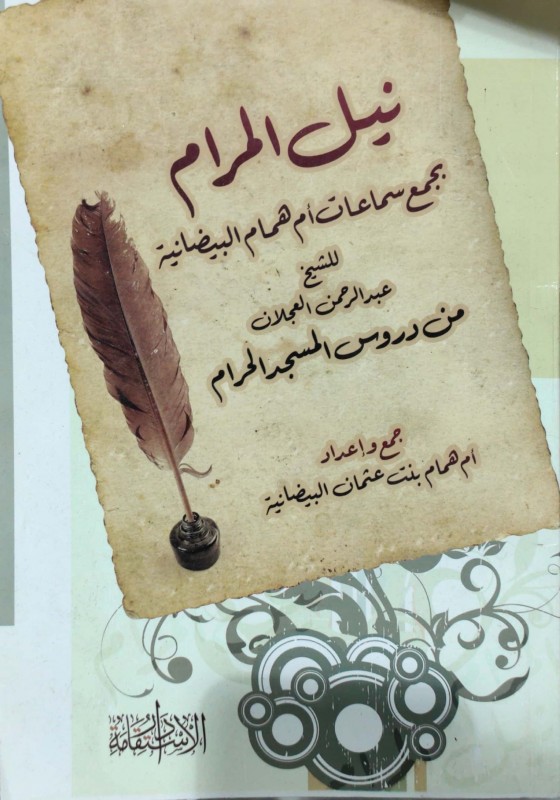 نيل المرام
بجمع سماعات أم همام البيضانية
للشيخ
عبد الرحمن العجلان
من دروس المسجد الحرام
جمع وإعداد
أم همام بنت عثمان البيضانية
دار الاستقامة